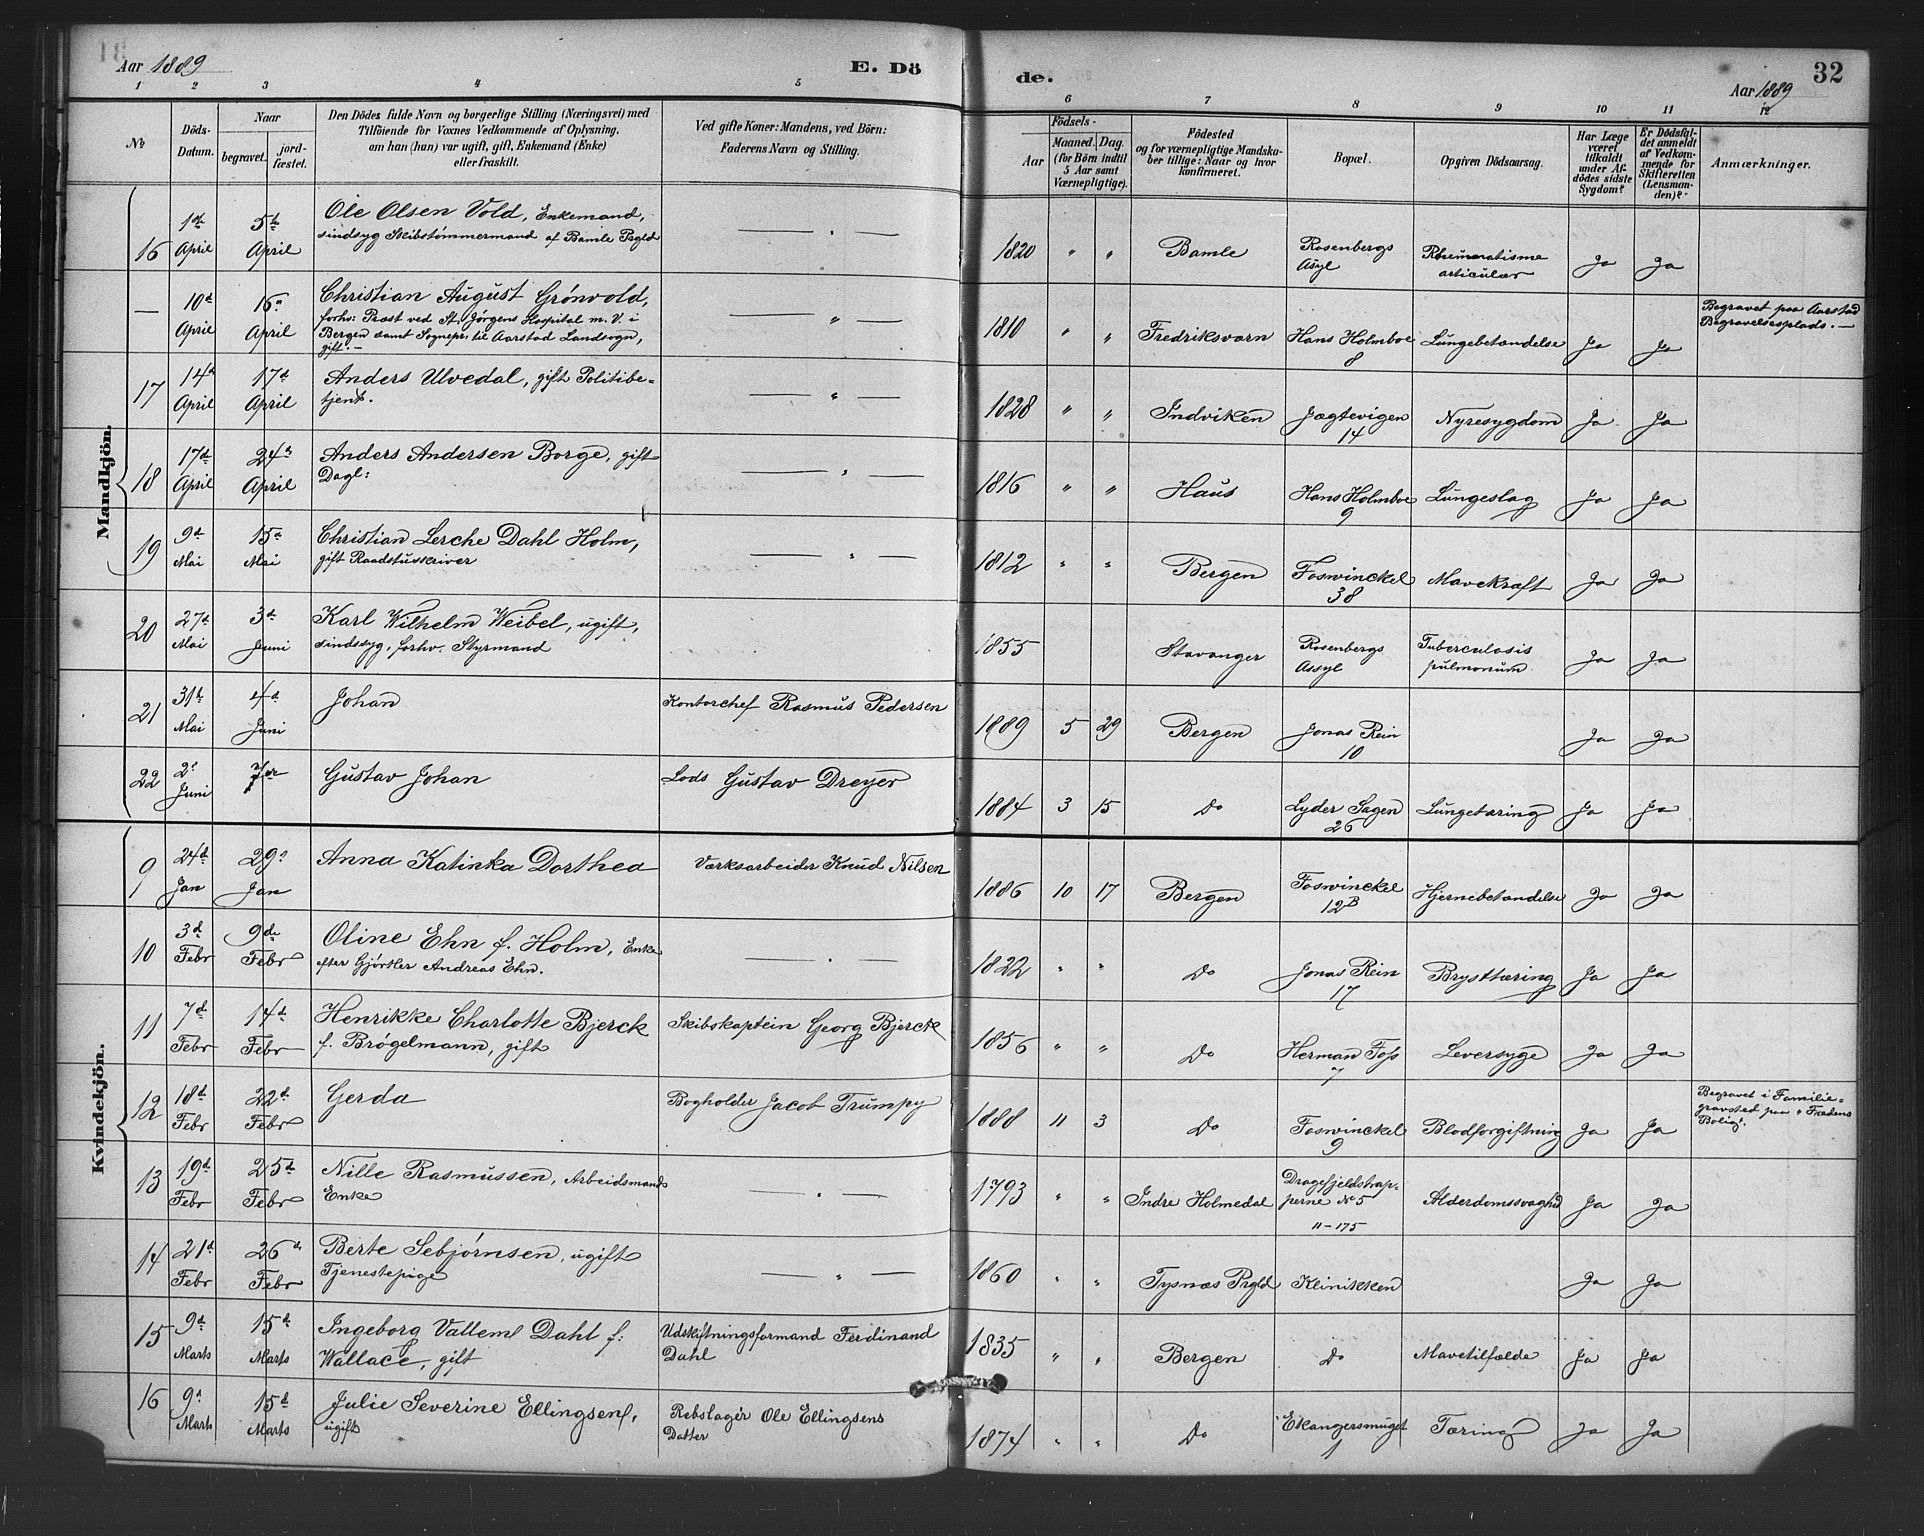 Aar 1889
E. Dö
de.
32
Aar 1889
1 2 3 4 5 6 7 8 9 10 11 12
No
Döds-
Datum.
Naar
begravet.
jord-
fæstet.
Den Dödes fulde Navn og borgerlige Stilling (Næringsvei) med
Tilföiende for Voxnes Vedkommende af Oplysning,
om han (hun) var ugift, gift, Enkemand (Enke)
eller fraskilt.
Ved gifte Koner: Mandens, ved Börn:
Faderens Navn og Stilling.
Födsels-
Aar
Maaned. Dag.
(for Börn indtil
5 Aar samt
Værnepligtige).
Födested
og for værnepligtige Mandska-
ber tillige: Naar og hvor
konfirmeret.
Bopæl.
Opgiven Dödsaarsag.
Har Læge
været
tilkaldt
under Af-
dödes sidste
Sygdom?
Er Dödsfal-
det anmeldt
af Vedkom-
mende for
Skifteretten
(Lensman-
den)?
Anmærkninger.
Mandkjön.
16 1ste April 5te April Ole Olsen Vold, Enkemand,
sindsyg Skibstømmermand af Bamle Prgld — " — 1820 " " Bamle Rosenbergs
Asyl Rheumatisme
articulær Ja Ja
— 10d April 16d April Christian August Grönvold,
forhv: Præst ved St. Jørgens Hospital m. V. i
Bergen samt Sognepr: til Aarstad Landsogn,
gift. — — " — 1810 " " Fredriksværn Hans Holmboe
8 Lungebetændelse Ja Ja Begravet paa Aarstad
Begravelsesplads. —
17 14d April 17d April Anders Ulvedal, gift Politibe-
tjent. — " — 1828 " " Indviken Jægtevigen
14 Nyresygdom Ja Ja
18 17de April 24d April Anders Andersen Borge, gift
Dagl: — " — 1816 " " Haus Hans Holmboe
9 Lungeslag Ja Ja
19 9d Mai 15d Mai Christian Lerche Dahl Holm,
gift Raadstuskriver — " — 1812 " " Bergen Foswinckel
38 Mavekræft Ja Ja
20 27d Mai 3d Juni Karl Wilhelm Weibel, ugift,
sindssyg, forhv. Styrmand 1855 Stavanger Rosenbergs
Assyl Tuberculosis
pulmonum Ja Ja
21 31te Mai 4d Juni Johan Kontorchef Rasmus Pedersen 1889 5 29 Bergen Jonas Rein
10 Ja Ja
22 2d Juni 7de Gustav Johan Lods Gustav Dreyer 1884 3 15 Do Lyder Sagen
26 Lungetæring Ja Ja
Kvindekjön.
9 24d Jan 29d Jan Anna Katinka Dorthea Værksarbeider Knud Nilsen 1886 10 17 Bergen Foswinckel
12B Hjernebetændelse Ja Ja
10 3d Febr 9de Febr Oline Ehn f. Holm, Enke
efter Gjörtler Andreas Ehn. — " — 1822 " " Do Jonas Rein
17 Brysttæring Ja Ja
11 7d Febr 14de Febr Henrikke Charlotte Bjerck
f. Brögelmann, gift Skibskaptein Georg Bjerck 1856 " " Do Herman Foss
7 Leversyge Ja Ja
12 18d Febr 22d Febr Gerda Bogholder Jacob Trumpy 1888 11 3 Do Foswinckel
9 Blodforgiftning Ja Ja Begravet i Familie-
gravsted paa "Fredens
Bolig".
13 19d Febr 25d Febr Nille Rasmussen, Arbeidsmands
Enke — " — 1793 " " Indre Holmedal Dragefjeldstrap-
perne No 5
11-175 Alderdomssvaghed Ja Ja
14 21d Febr 26de Febr Berte Sebjørnsen, ugift
Tjenestepige — " — 1860 " " Tysnæs Prgld Klinikken Ja Ja
15 9d Marts 15d Marts Ingeborg Dahl f:
Wallace, gift Udskiftningsformand Ferdinand
Dahl 1835 " " Bergen Do Mavetilfælde Ja Ja
16 9d Marts 15d Marts Julie Severine Ellingsen,
ugift Rebslager Ole Ellingsens
Datter 1874 " " Do Ekangersmuget
1 Tæring Ja Ja